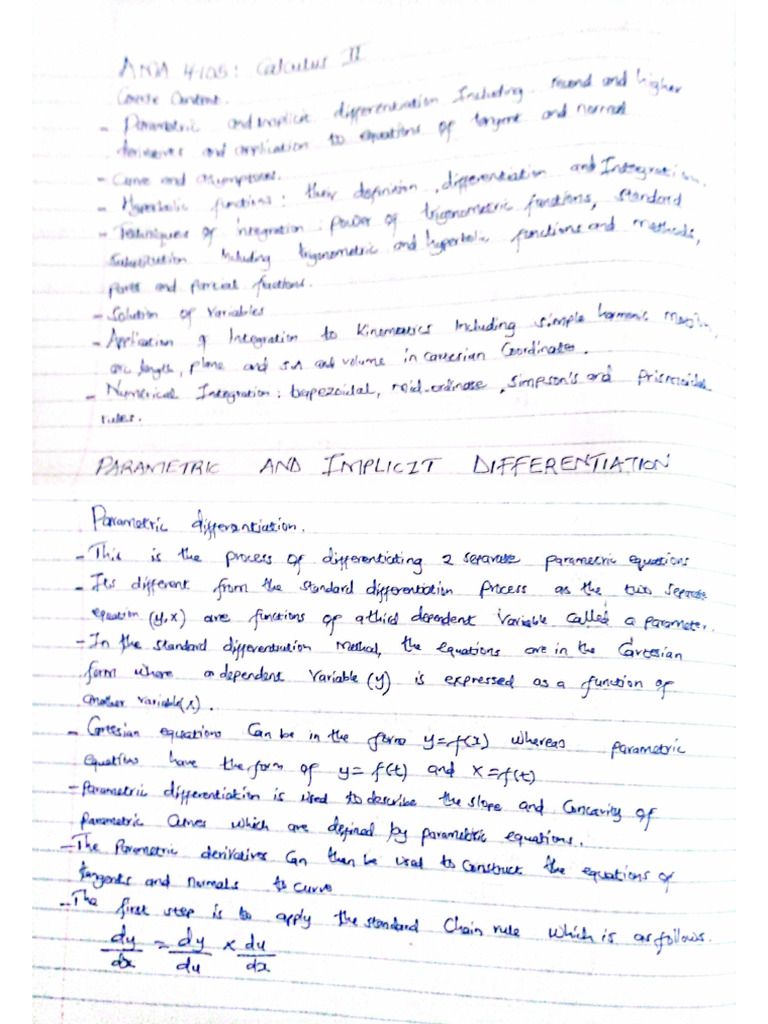 AMA 4105: Calculus II
Course Content.
- Parametric and Implicit differentiation Including second and higher
derivatives and application to equations of tangent and normal
- Curve and asymptotes.
- Hyperbolic functions: their definition, differentiation and Integration.
- Techniques of integration: power of trigonometric functions, standard
substitution Including trigonometric and hyperbolic functions and methods,
parts and partial fractions.
- Solution of variables
- Application of Integration to Kinematics Including simple harmonic motion,
arc length, plane and S.A and volume in cartesian coordinates.
- Numerical Integration: trapezoidal, mid-ordinate, Simpson's and Prismoidal
rules.
PARAMETRIC AND IMPLICIT DIFFERENTIATION
Parametric differentiation.
- This is the process of differentiating 2 separate parametric equations
- Its different from the standard differentiation process as the two separate
equation (y,x) are functions of a third dependent variable called a parameter.
- In the standard differentiation method, the equations are in the Cartesian
form where a dependent variable (y) is expressed as a function of
another variable(x).
- Cartesian equations can be in the form y=f(x) whereas parametric
equations have the form of y= f(t) and x=f(t)
- Parametric differentiation is used to describe the slope and concavity of
parametric curves which are defined by parametric equations.
- The parametric derivatives can then be used to construct the equations of
tangents and normals to curve
- The first step is to apply the standard chain rule which is as follows.
dy/dx = dy/du × du/dx